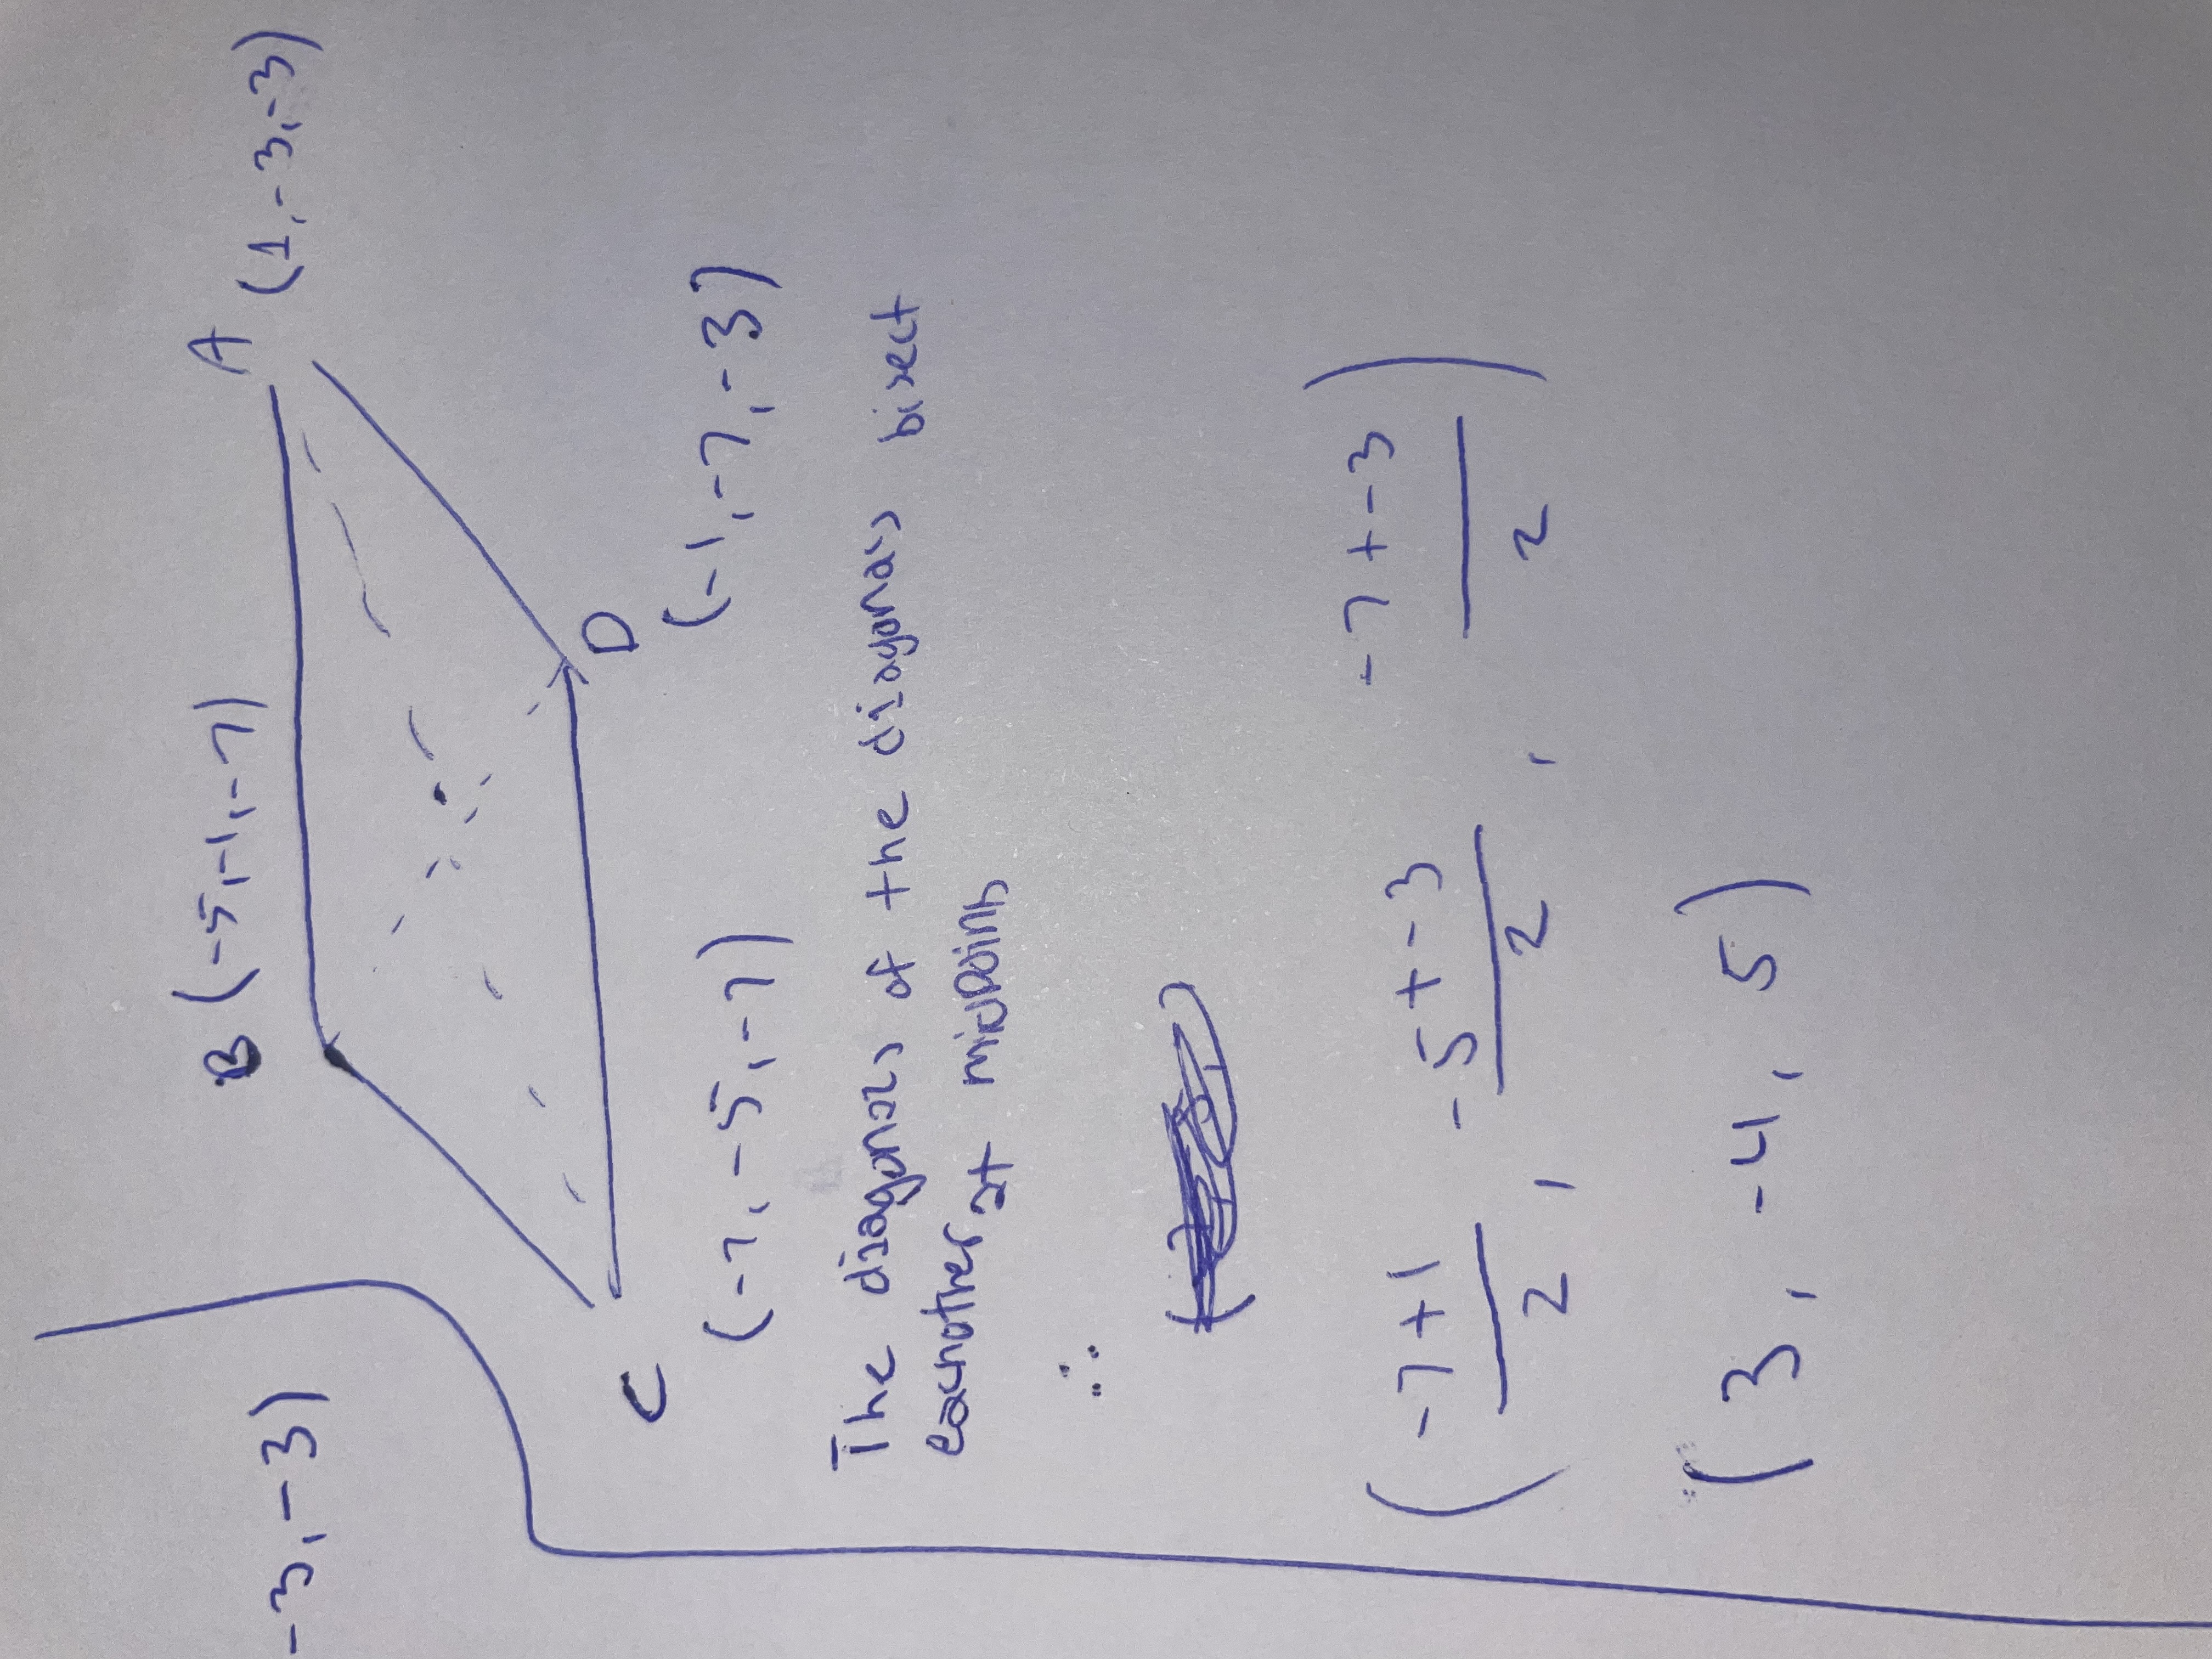 -3, -3)
B (-5, -1, -7)
A
(1, -3, -3)
C
D
(-7, -5, -7)
(-1, -7, -3)
The diagonals of the diagonals bisect
eachother at midpoints
∴
(-7+1/2, -5+-3/2, -7+-3/2)
(3, -4, 5)